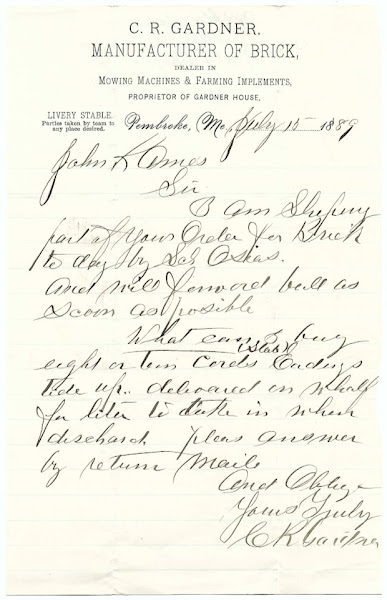 C. R. GARDNER,
MANUFACTURER OF BRICK,
DEALER IN
MOWING MACHINES & FARMING IMPLEMENTS,
PROPRIETOR OF GARDNER HOUSE,
LIVERY STABLE.
Parties taken by team to
any place desired.
Pembroke, Me., July 15 1889
John K Ames
Sir
I am Shiping
part of your Order for Brick
to day by Sch Osias.
and will forward ball as
scoon as posible
What can I buy
(Slab)
eight or ten Cords Endings
tide up. delivered on Whalf
for liter to take in when
discharch pleas answer
by return Maile
And Oblige
Yours Truly
C R Gardner